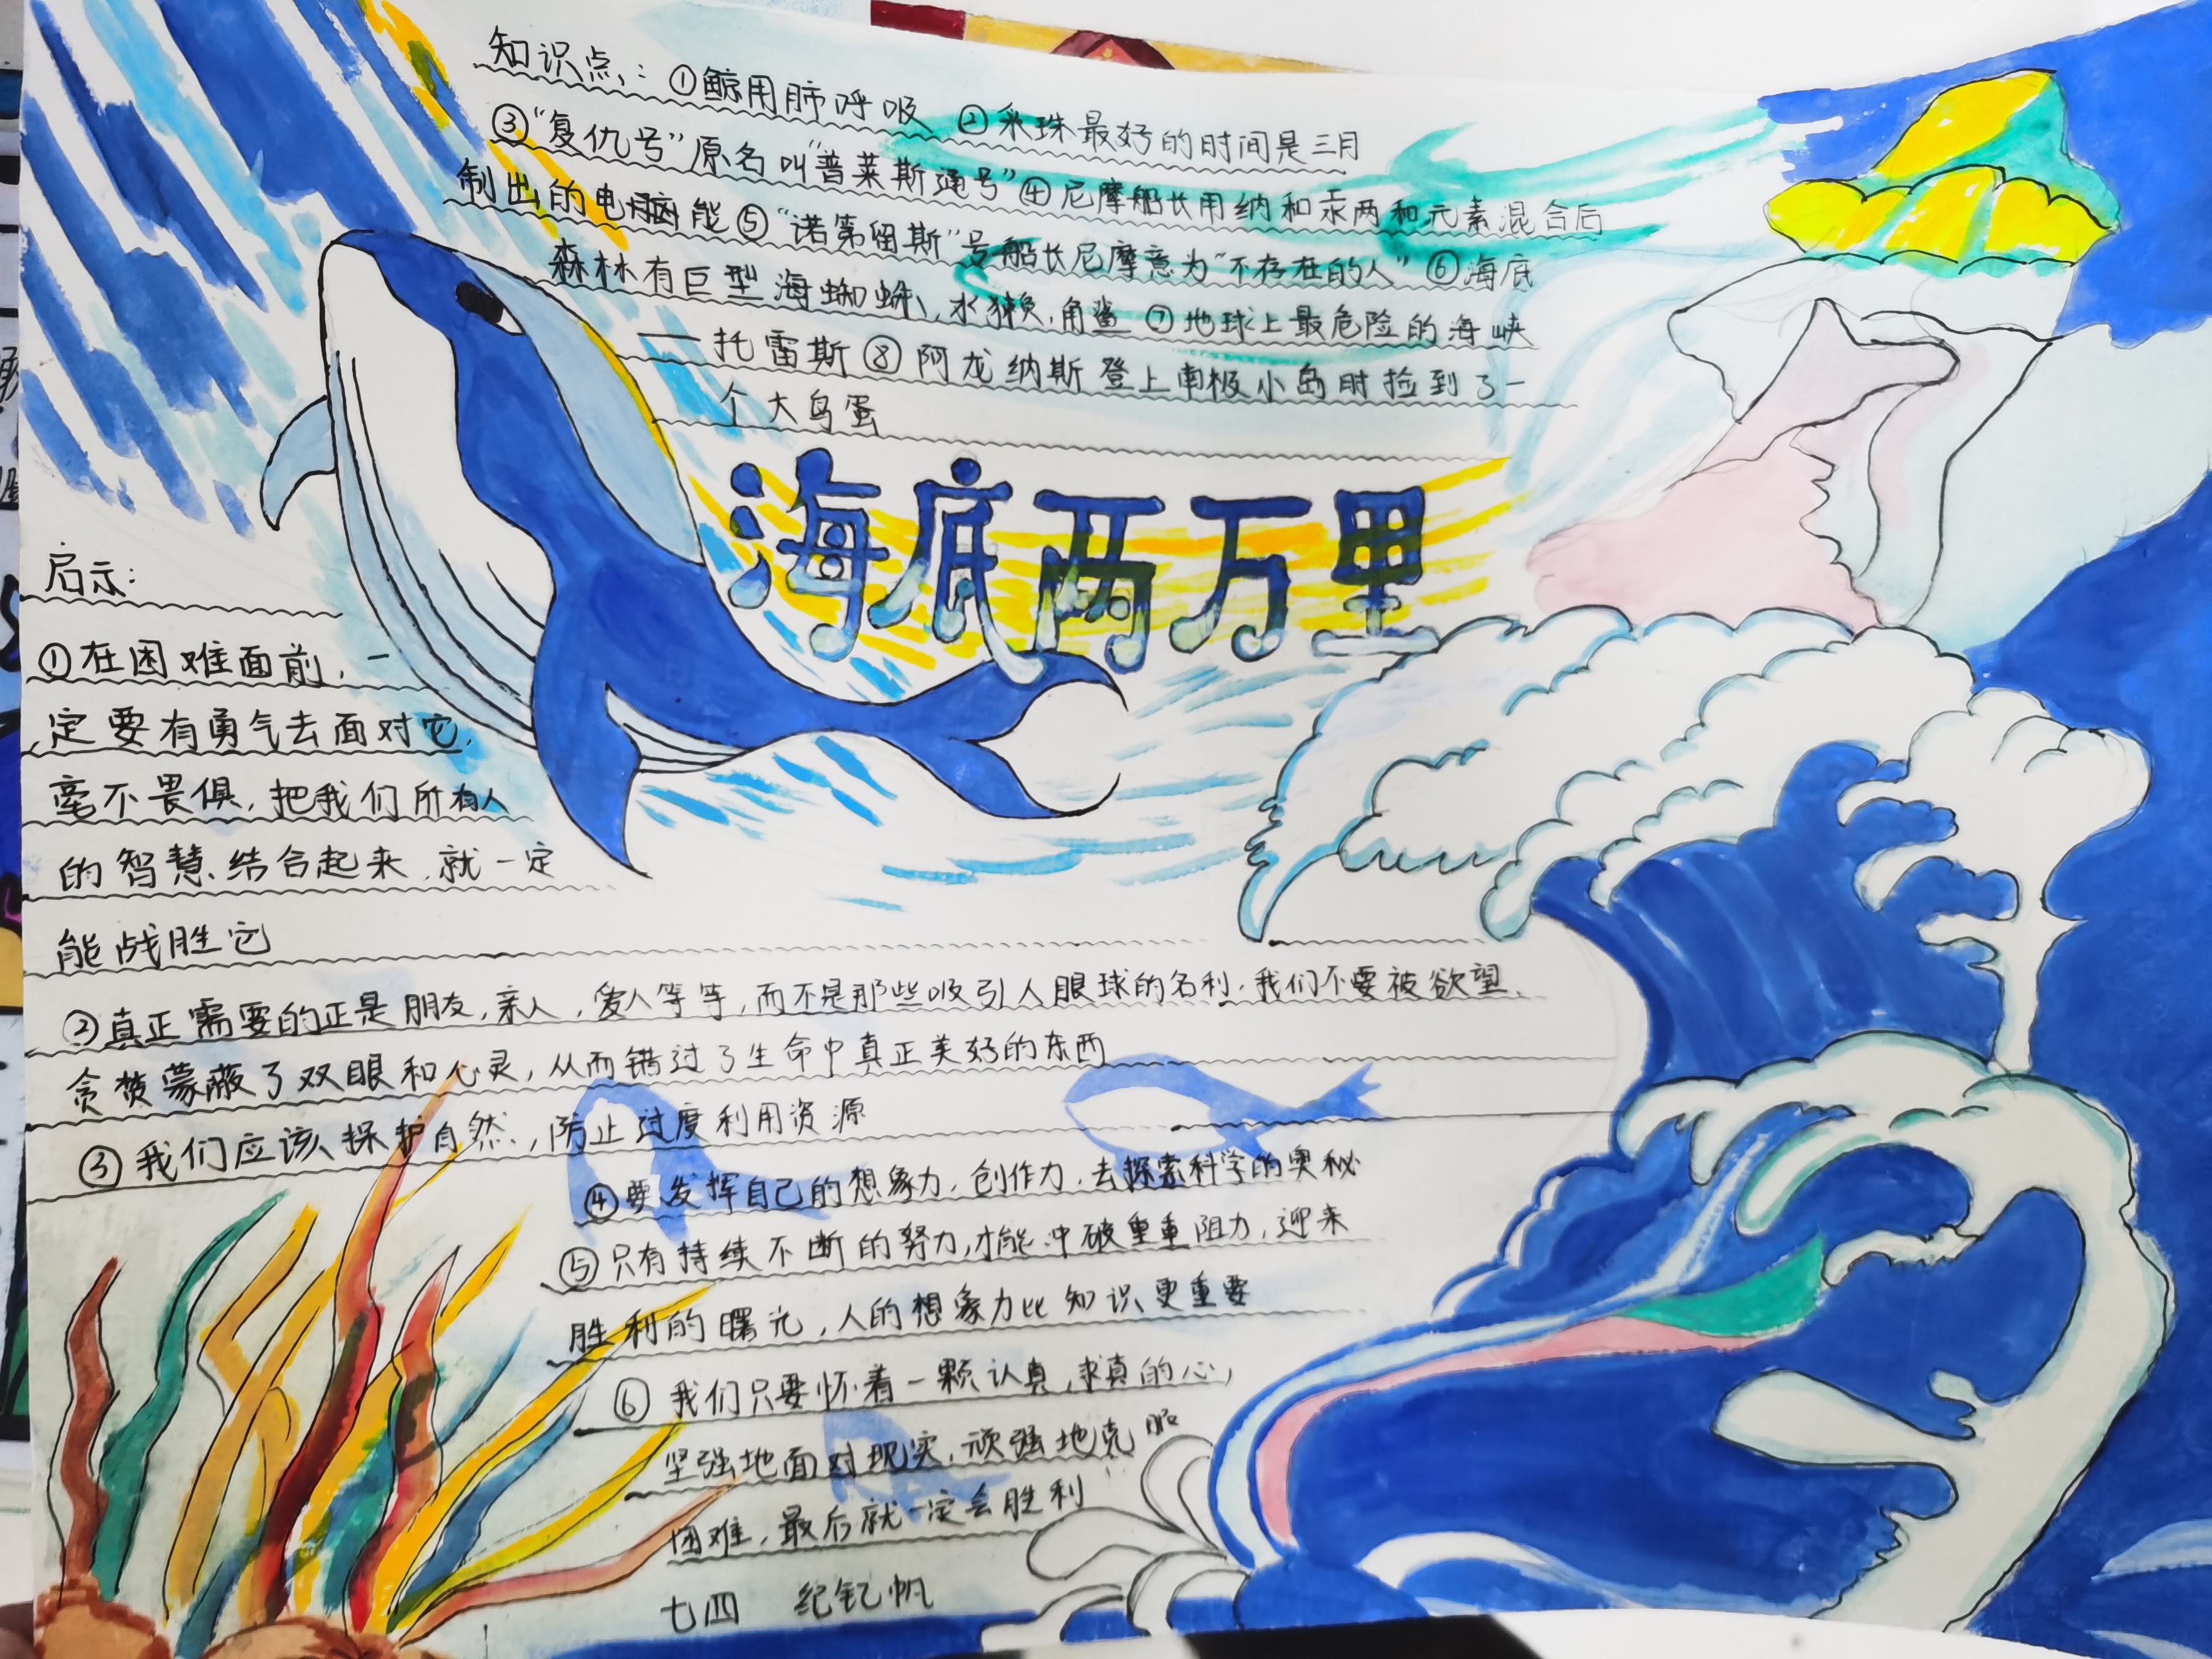 知识点：①鲸用肺呼吸 ②采珠最好的时间是三月
③“复仇号”原名叫“普莱斯通号”④尼摩船长用纳和汞两和元素混合后
制出的电脑能⑤“诺第留斯”号船长尼摩意为“不存在的人”⑥海底
森林有巨型海蜘蛛、水獭、角鲨⑦地球上最危险的海峡
——托雷斯⑧阿龙纳斯登上南极小岛时捡到了一
个大鸟蛋
海底两万里
启示：
①在困难面前，一
定要有勇气去面对它，
毫不畏惧，把我们所有人
的智慧结合起来，就一定
能战胜它
②真正需要的正是朋友，亲人，爱人等等，而不是那些吸引人眼球的名利，我们不要被欲望、
贪婪蒙蔽了双眼和心灵，从而错过了生命中真正美好的东西
③我们应该保护自然，防止过度利用资源
④要发挥自己的想象力，创作力，去探索科学的奥秘
⑤只有持续不断的努力，才能冲破重重阻力，迎来
胜利的曙光，人的想象力比知识更重要
⑥我们只要怀着一颗认真，求真的心，
坚强地面对现实，顽强地克服
困难，最后就一定会胜利
七四 纪钇帆